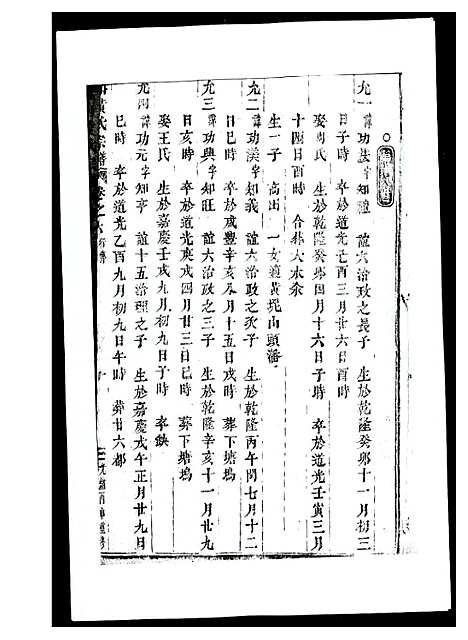 允一 諱功法 字知禮 誼六治政之長子 生於乾隆癸卯十一月初三
日子時 卒於道光己酉三月廿六日酉時
娶周氏 生於乾隆癸卯四月十六日子時 卒於道光壬寅三月
十四日酉時 合葬大水汆
生一子 高出 一女適黃坭山頭潘
允二 諱功漢 字知義 誼六治政之次子 生於乾隆丙午閏七月十二
日巳時 卒於咸豐辛亥八月十五日戌時 葬下塘塢
允三 諱功興 字知旺 誼六治政之三子 生於乾隆辛亥十一月廿九
日亥時 卒於道光庚戌四月廿三日巳時 葬下塘塢
娶王氏 生於嘉慶壬戌九月初九日子時 卒缺
允四 諱功元 字知亨 誼十五治理之子 生於嘉慶戊午正月廿九日
巳時 卒於道光乙酉九月初九日午時 葬廿六都
黃氏宗譜 卷之六 行傳